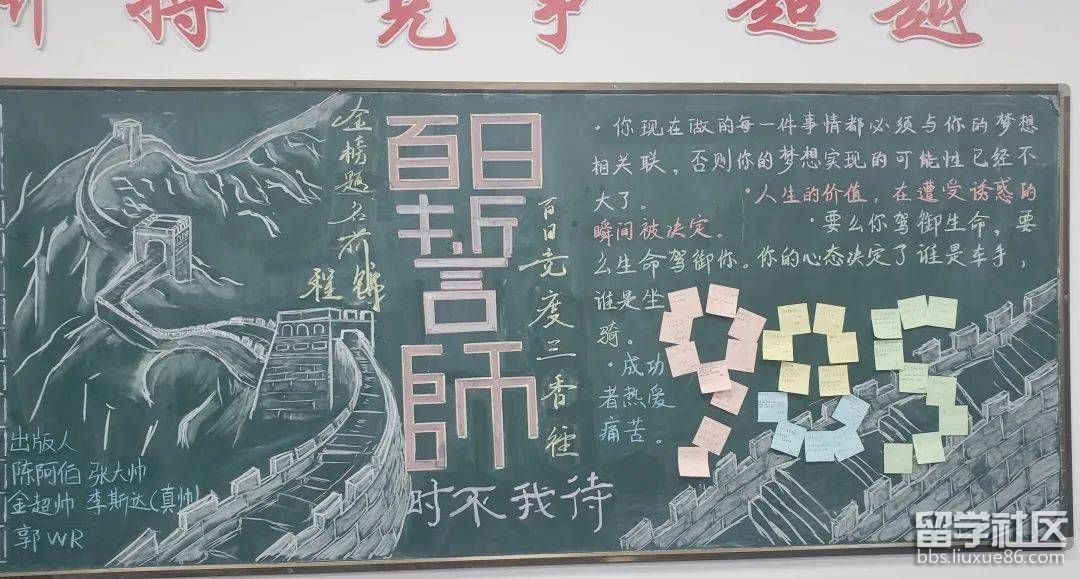 竞 争 超 越
金榜题名前锦
程
百日
誓
師
百日竞度三香往
时不我待
·你现在做的每一件事情都必须与你的梦想
相关联，否则你的梦想实现的可能性已经不
大了。 ·人生的价值，在遭受诱惑的
瞬间被决定。 ·要么你驾御生命，要
么生命驾御你。你的心态决定了谁是车手，
谁是坐
骑。
·成功
者热爱
痛苦。
985
出版人
陈阿伯 张大帅
金超帅 李斯达(真帅)
郭WR
留学社区
bbs.liuxue86.com